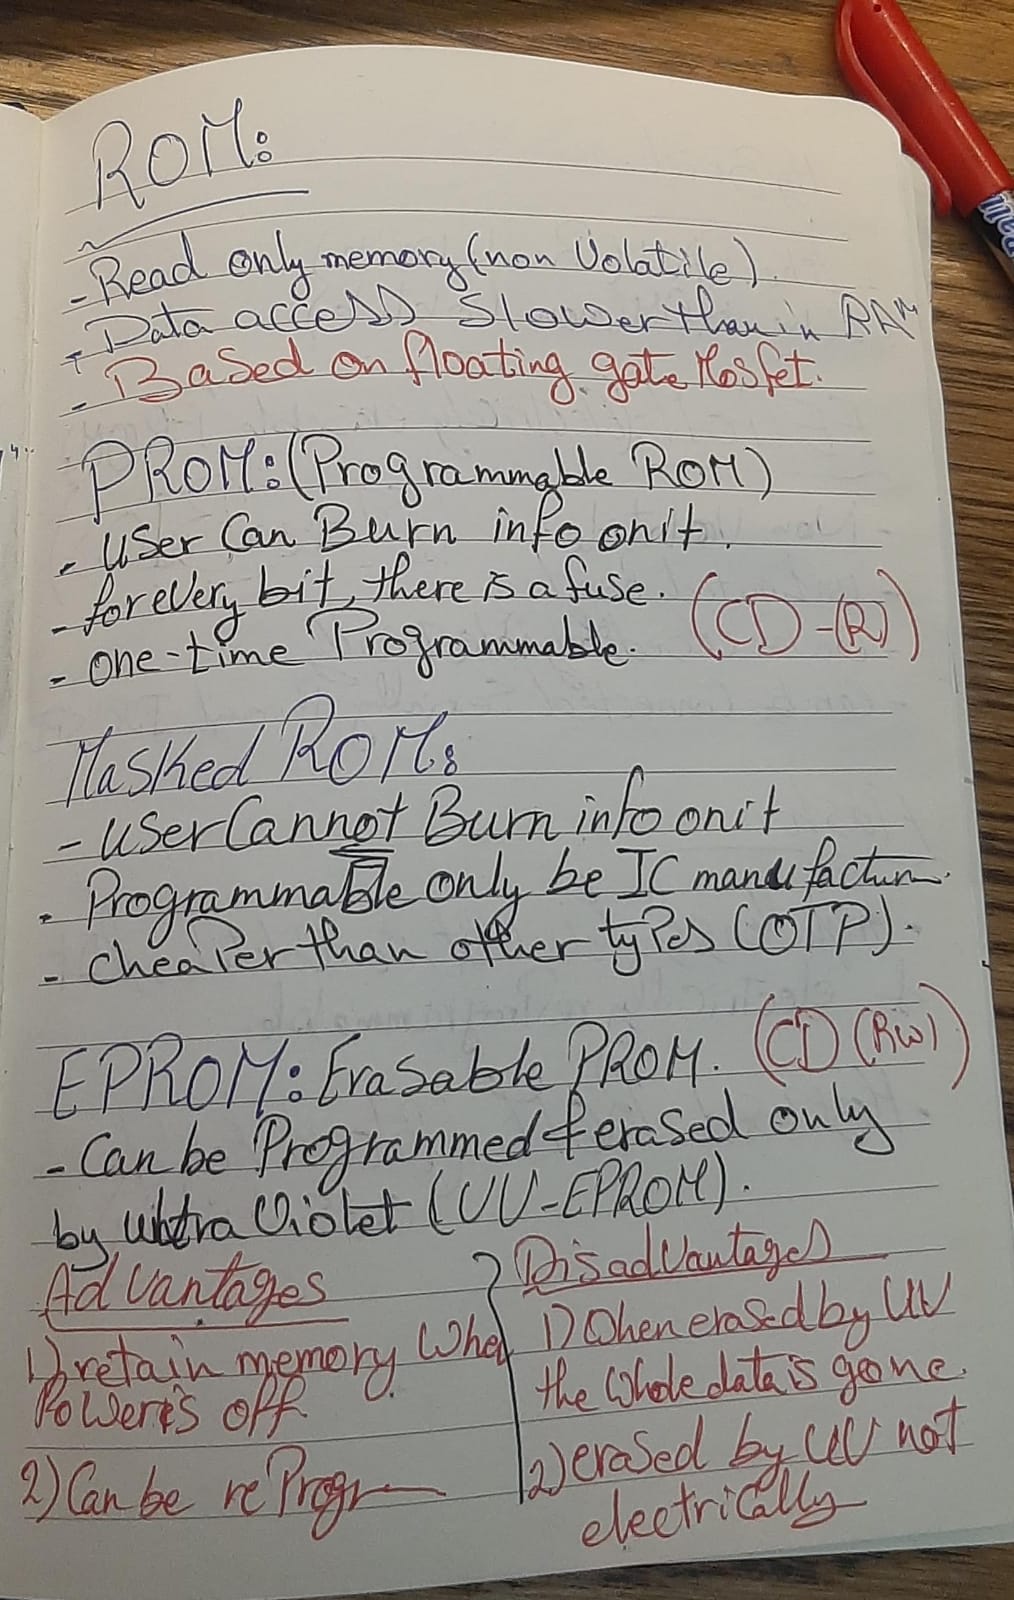 ROM:
- Read only memory (non Volatile).
- Data access slower than in RAM
- Based on floating gate Mosfet.
PROM: (Programmable ROM)
- user Can Burn info on it.
- for every bit, there is a fuse.
- one-time Programmable. (CD-(R))
Masked ROM:
- user Cannot Burn info on it
- Programmable only be IC manufactur
- cheaper than other types (OTP).
EPROM: Erasable PROM. (CD (RW))
- Can be Programmed & erased only
by ultra Violet (UV-EPROM).
Advantages
1) retain memory When
Power is off
2) Can be re Progr
Disadvantages
1) When erased by UV
the whole data is gone.
2) erased by UV not
electrically